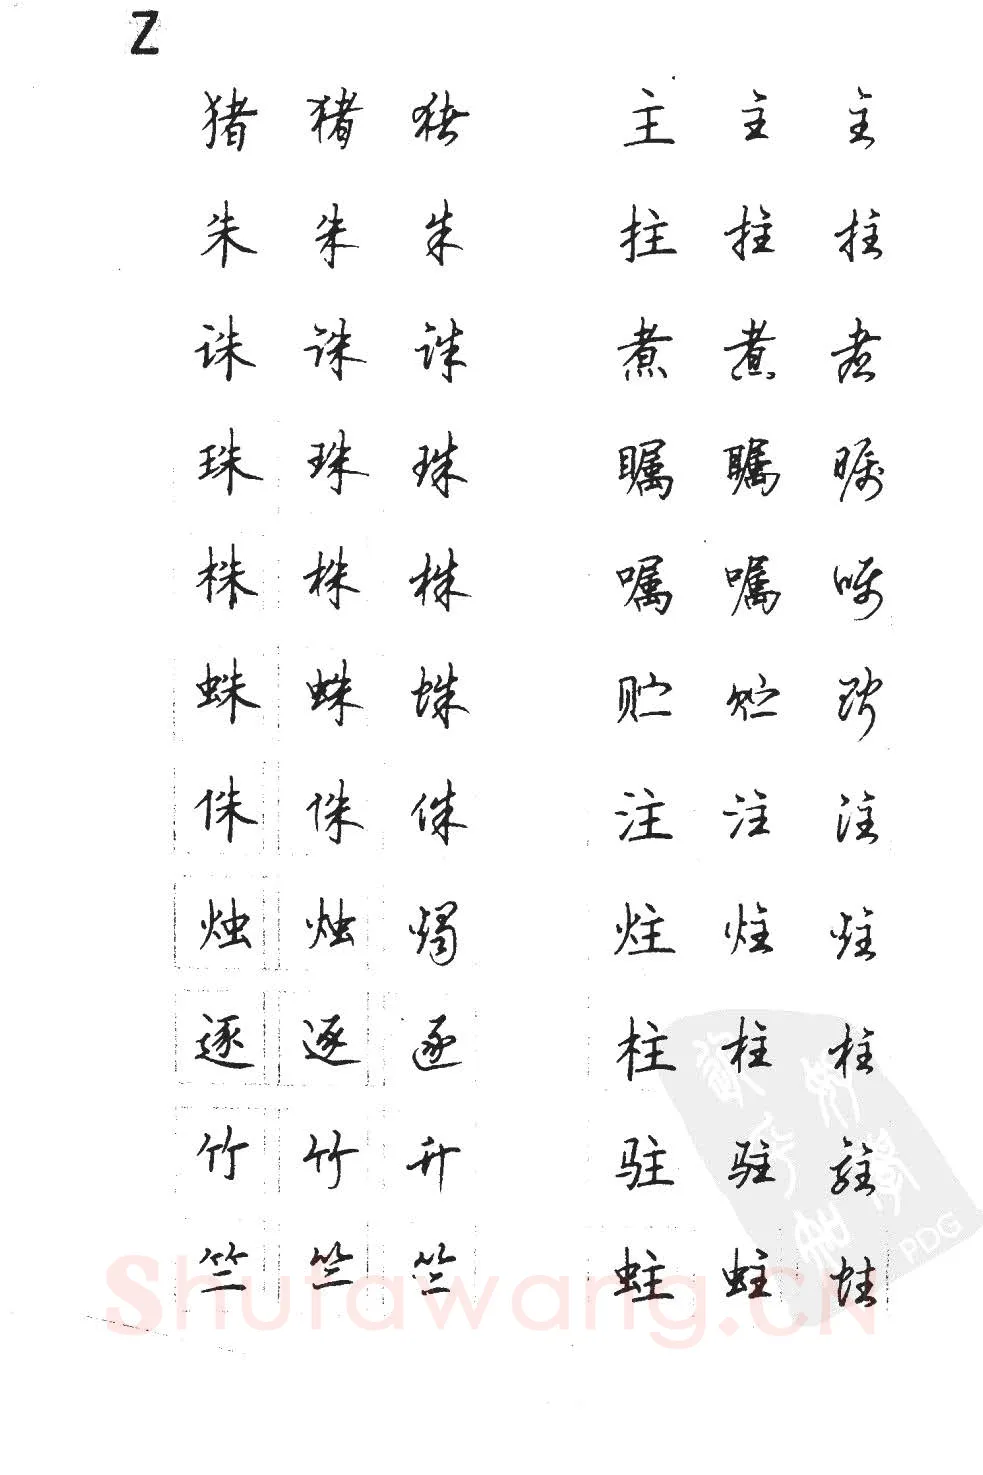 Z
猪 猪 猪 主 主 主
朱 朱 朱 拄 拄 拄
诛 诛 诛 煮 煮 煮
珠 珠 珠 瞩 瞩 瞩
株 株 株 嘱 嘱 嘱
蛛 蛛 蛛 贮 贮 贮
侏 侏 侏 注 注 注
烛 烛 燭 炷 炷 炷
逐 逐 逐 柱 柱 柱
竹 竹 竹 驻 驻 驻
竺 竺 竺 蛀 蛀 蛀
PDG
Shufawang.CN